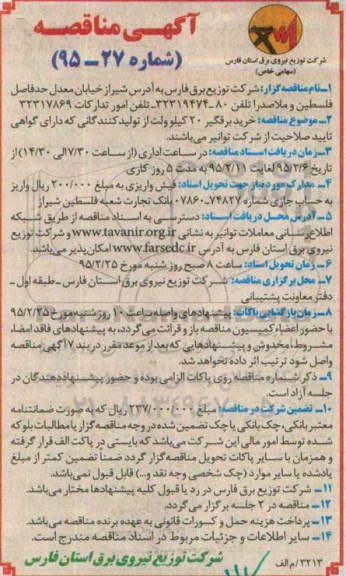 آگهی مناقصه
(شماره ۲۷ – ۹۵)
شرکت توزیع نیروی برق استان فارس
(سهامی خاص)
۱–نام مناقصه گزار: شرکت توزیع برق فارس به آدرس شیراز خیابان معدل حدفاصل
فلسطین و ملاصدرا تلفن ۸۰ ـ ۳۲۳۱۹۴۷۴ـ تلفن امور تدارکات ۳۲۳۱۷۸۶۹
۲– موضوع مناقصه: خرید برقگیر ۲۰ کیلو ولت از تولیدکنندگانی که دارای گواهی
تایید صلاحیت از شرکت توانیر می‌باشند.
۳–زمان دریافت اسناد مناقصه: در ساعت اداری (از ساعت ۷/۳۰ الی ۱۴/۳۰) از
تاریخ ۹۵/۲/۶ لغایت ۹۵/۲/۱۱ به مدت ۵ روز کاری
۴– مدارک مورد نیاز جهت تحویل اسناد: فیش واریزی به مبلغ ۲۰۰/۰۰۰ ریال واریز
به حساب جاری شماره ۷۴۸۲۷–۰۷۸۶۰ بانک تجارت شعبه فلسطین شیراز
۵– آدرس محل دریافت اسناد: دسترسی به اسناد مناقصه از طریق شبکه
اطلاع رسانی معاملات توانیر به نشانی www.tavanir.org.ir و شرکت توزیع
نیروی برق استان فارس به آدرس www.farsedc.ir امکان پذیر می‌باشد.
۶– زمان تحویل اسناد: ساعت ۸ صبح روز شنبه مورخ ۹۵/۲/۲۵
۷– محل برگزاری مناقصه: شرکت توزیع نیروی برق استان فارس –طبقه اول –
دفتر معاونت پشتیبانی
۸–زمان بازگشایی پاکات: پیشنهادهای واصله ساعت ۱۰ روز شنبه مورخ ۹۵/۲/۲۵
با حضور اعضاء کمیسیون مناقصه باز و قرائت می‌گردد، به پیشنهادهای فاقد امضاء،
مشروط، مخدوش و پیشنهادهایی که بعد از موعد مقرر در بند ۷ آگهی مناقصه
واصل شود ترتیب اثر داده نخواهد شد.
۹– ذکر شماره مناقصه روی پاکات الزامی بوده و حضور پیشنهاددهندگان در
جلسه آزاد است.
۱۰– تضمین شرکت در مناقصه: مبلغ ۲۳۷/۰۰۰/۰۰۰ ریال که به صورت ضمانتنامه
معتبر بانکی، چک بانکی یا چک تضمین شده در وجه مناقصه گزار یا مطالبات بلوکه
شده توسط امور مالی این شرکت می‌باشد که بایستی در پاکت الف قرار گرفته
و همزمان با سایر پاکات تحویل مناقصه گزار گردد ضمنا تضمین کمتر از مبلغ
یادشده یا سایر موارد (چک شخصی وجه نقد و...) قابل قبول نمی‌باشد.
۱۱– شرکت توزیع برق فارس در رد یا قبول کلیه پیشنهادها مختار می‌باشد.
۱۲– مناقصه در ۲ جلسه برگزار می‌گردد.
۱۳– پرداخت هزینه حمل و کسورات قانونی به عهده برنده مناقصه می‌باشد.
۱۴– سایر اطلاعات و جزئیات مربوط در اسناد مناقصه مندرج است.
۳۲۱۳/م الف
شرکت توزیع نیروی برق استان فارس